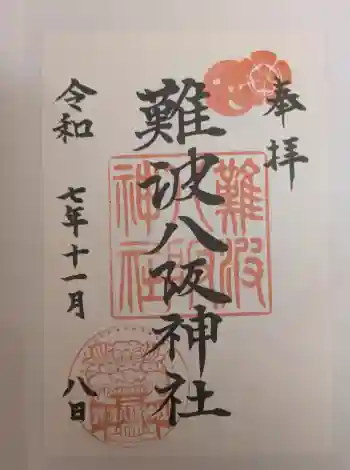 奉拝
難波八阪神社
令和七年十一月八日
難波
八阪
神社